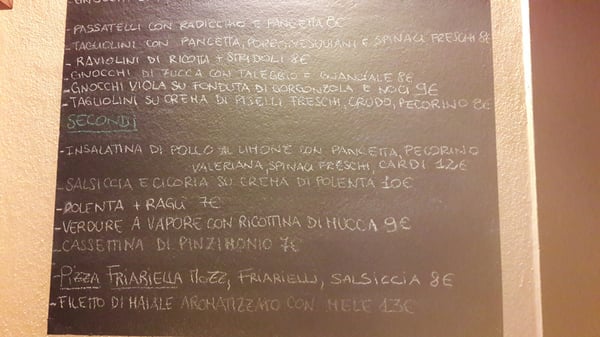 - PASSATELLI CON RADICCHIO E PANCETTA 8€
- TAGLIOLINI CON PANCETTA, E SPINACI FRESCHI 8€
- RAVIOLINI DI RICOTTA + STRIDOLI 8€
- GNOCCHI DI ZUCCA CON TALEGGIO E GUANCIALE 8€
- GNOCCHI VIOLA SU FONDUTA DI GORGONZOLA E NOCI 9€
- TAGLIOLINI SU CREMA DI PISELLI FRESCHI, CRUDO, PECORINO 8€
SECONDI
- INSALATINA DI POLLO AL LIMONE CON PANCETTA, PECORINO
VALERIANA, SPINACI FRESCHI, CARDI 12€
- SALSICCIA E CICORIA SU CREMA DI POLENTA 10€
- POLENTA + RAGÙ 7€
- VERDURE A VAPORE CON RICOTTINA DI MUCCA 9€
- CASSETTINA DI PINZIMONIO 7€
- PIZZA FRIARIELLA MOZZ, FRIARIELLI, SALSICCIA 8€
- FILETTO DI MAIALE AROMATIZZATO CON MELE 13€